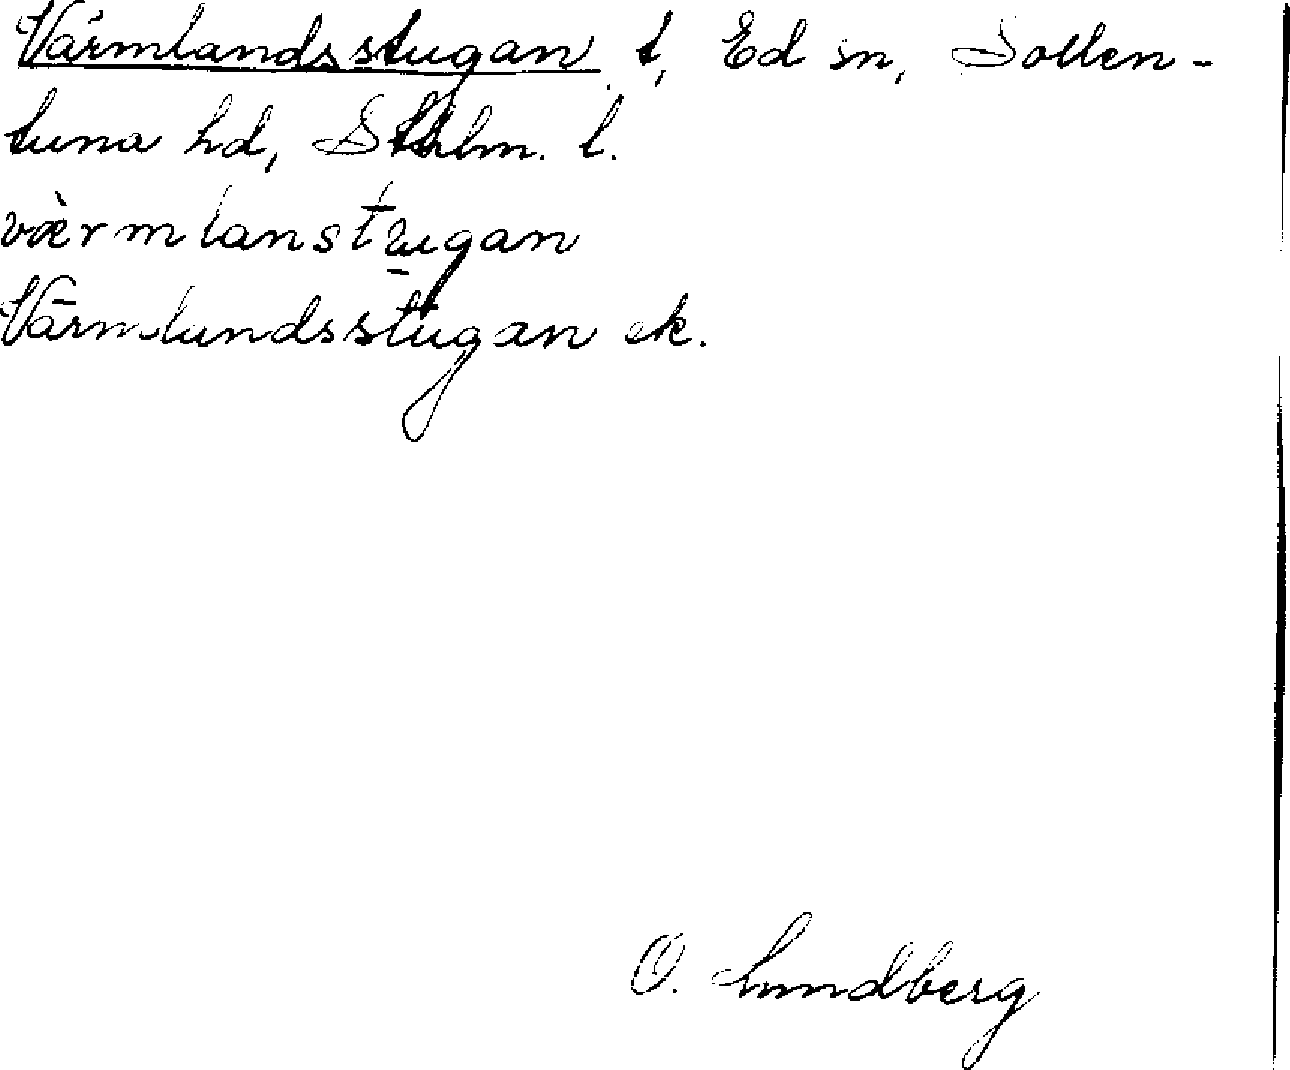 Värmlandsstugan t, Ed sn, Sollen-
tuna hd, Sthlm. l.
værmlanstugan
Värmlandsstugan ek.
O. Lundberg